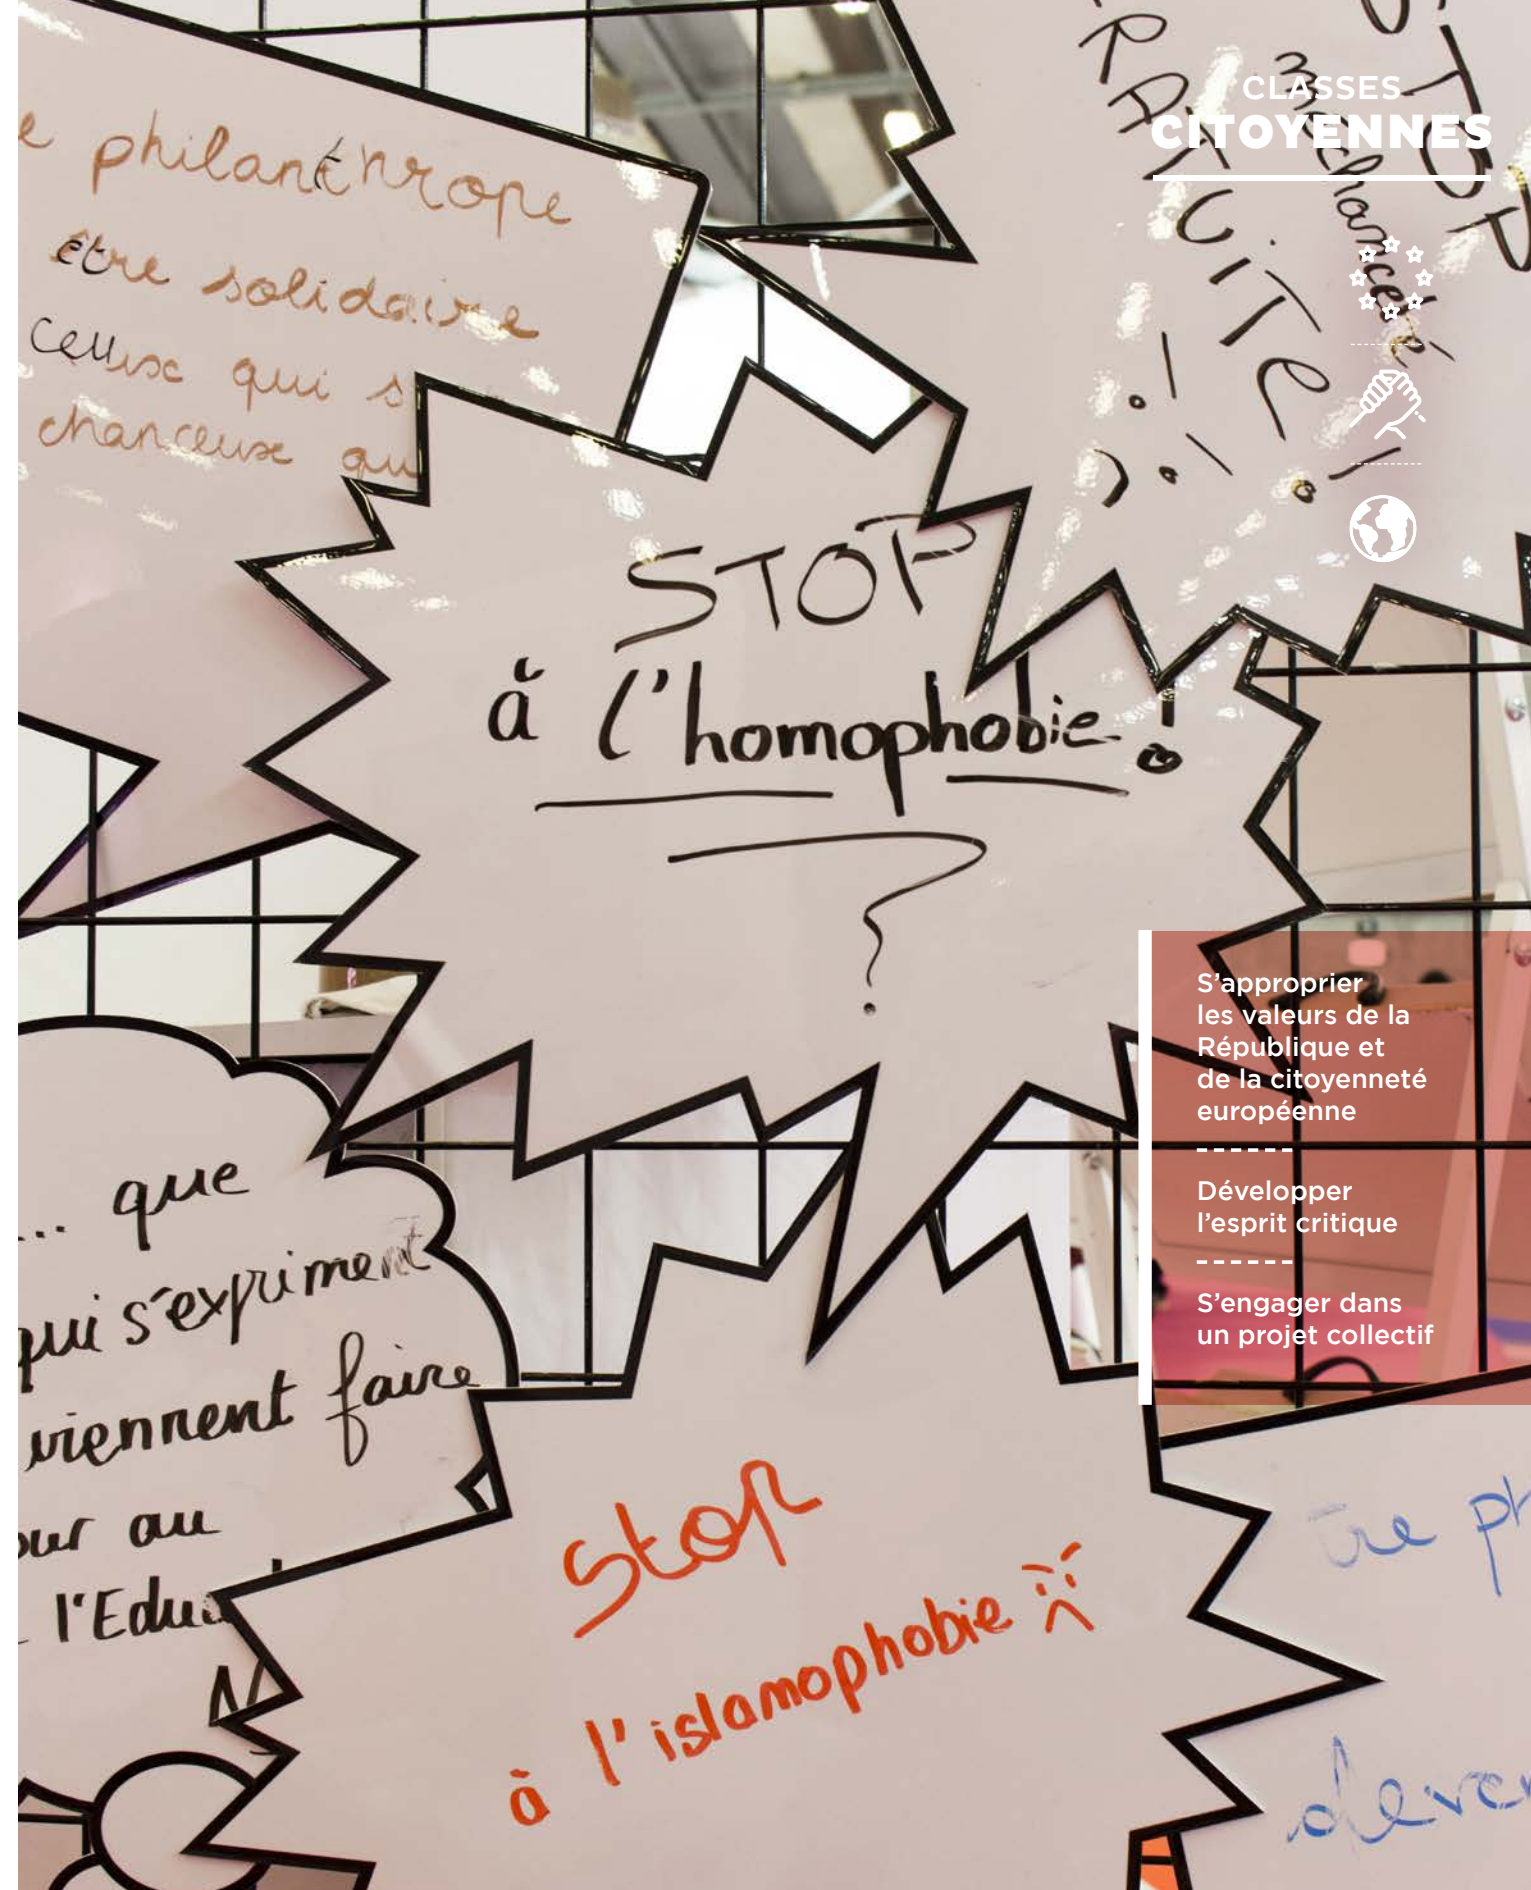 CLASSES
CITOYENNES
e philanthrope
être solidaire
ceuux qui s
chanceux qu
STOP
méchanceté
GRATUITE !
STOP
à l'homophobie !
?
S'approprier
les valeurs de la
République et
de la citoyenneté
européenne
Développer
l'esprit critique
S'engager dans
un projet collectif
... que
qui s'expriment
viennent faire
our au
l'Edu
Stop
à l'islamophobie
tre ph
deve